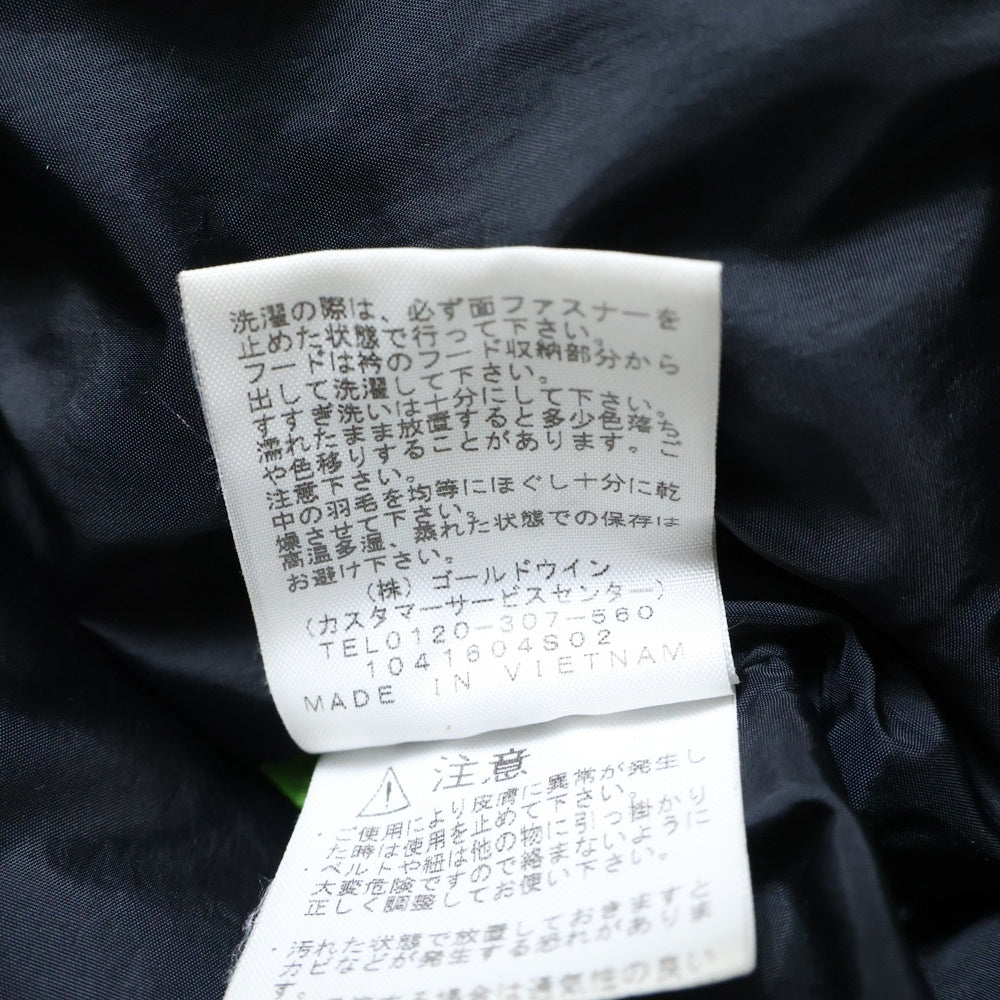 洗濯の際は、必ず面ファスナーを
止めた状態で行って下さい。
フードは衿のフード収納部分から
出して洗濯して下さい。
すすぎ洗いは十分にして下さい。
濡れたまま放置すると多少色落ち
や色移りすることがあります。ご
注意下さい。
中の羽毛を均等にほぐし十分に乾
燥させて下さい。
高温多湿、蒸れた状態での保存は
お避け下さい。
(株)ゴールドウイン
(カスタマーサービスセンター)
TEL0120-307-560
1041604S02
MADE IN VIETNAM
注意
・ご使用により皮膚に異常が発生し
た時は使用を止めて下さい。
・ベルトや紐は他の物に引っ掛かり
大変危険ですので絡まないように
正しく調整してお使い下さい。
・汚れた状態で放置しておきますと
カビなどが発生する恐れがありま
す。
する場合は通気性の良い